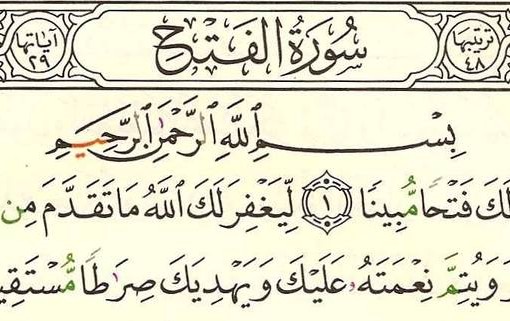 ترتيبها ٤٨ سُورَةُ الفَتْحِ آياتها ٢٩
بِسْمِ ٱللَّهِ ٱلرَّحْمَٰنِ ٱلرَّحِيمِ
لَكَ فَتْحًا مُّبِينًا ١ لِّيَغْفِرَ لَكَ ٱللَّهُ مَا تَقَدَّمَ مِن
وَيُتِمَّ نِعْمَتَهُۥ عَلَيْكَ وَيَهْدِيَكَ صِرَٰطًا مُّسْتَقِي